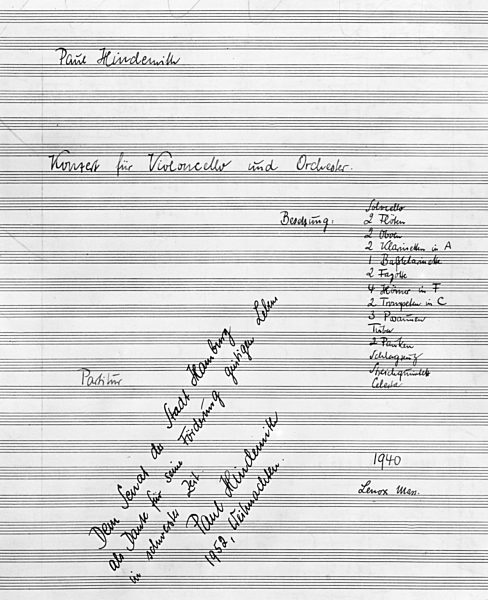 Paul Hindemith
Konzert für Violoncello und Orchester.
Besetzung:
Solocello
2 Flöten
2 Oboen
2 Klarinetten in A
1 Baßklarinette
2 Fagotte
4 Hörner in F
2 Trompeten in C
3 Posaunen
Tuba
2 Pauken
Schlagzeug
Streichquintett
Celesta
Partitur
1940
Lenox Mass.
Dem Senat der Stadt Hamburg
als Dank für seine Förderung geistigen Lebens
in schwerster Zeit.
Paul Hindemith
1952, Weihnachten.